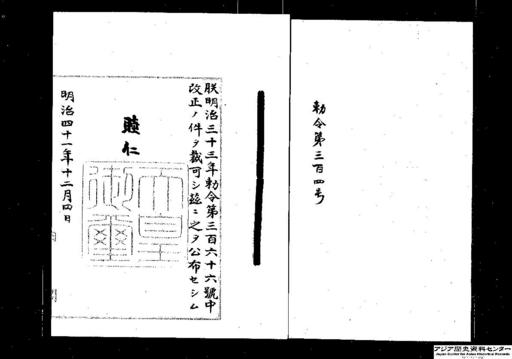 勅令第三百四号
朕明治三十三年勅令第三百六十六號中
改正ノ件ヲ裁可シ茲ニ之ヲ公布セシム
睦仁
天皇
御璽
明治四十一年十二月四日
アジア歴史資料センター
Japan Center for Asian Historical Records